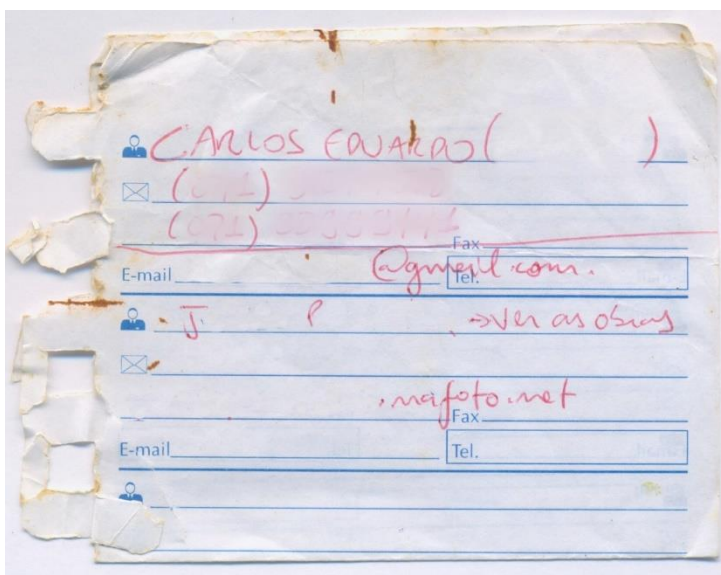 CARLOS EDUARDO ( )
(071)
(071)
Fax
@gmail.com.
E-mail Tel.
J. P →ver as obras
.nafoto.net
Fax
E-mail Tel.